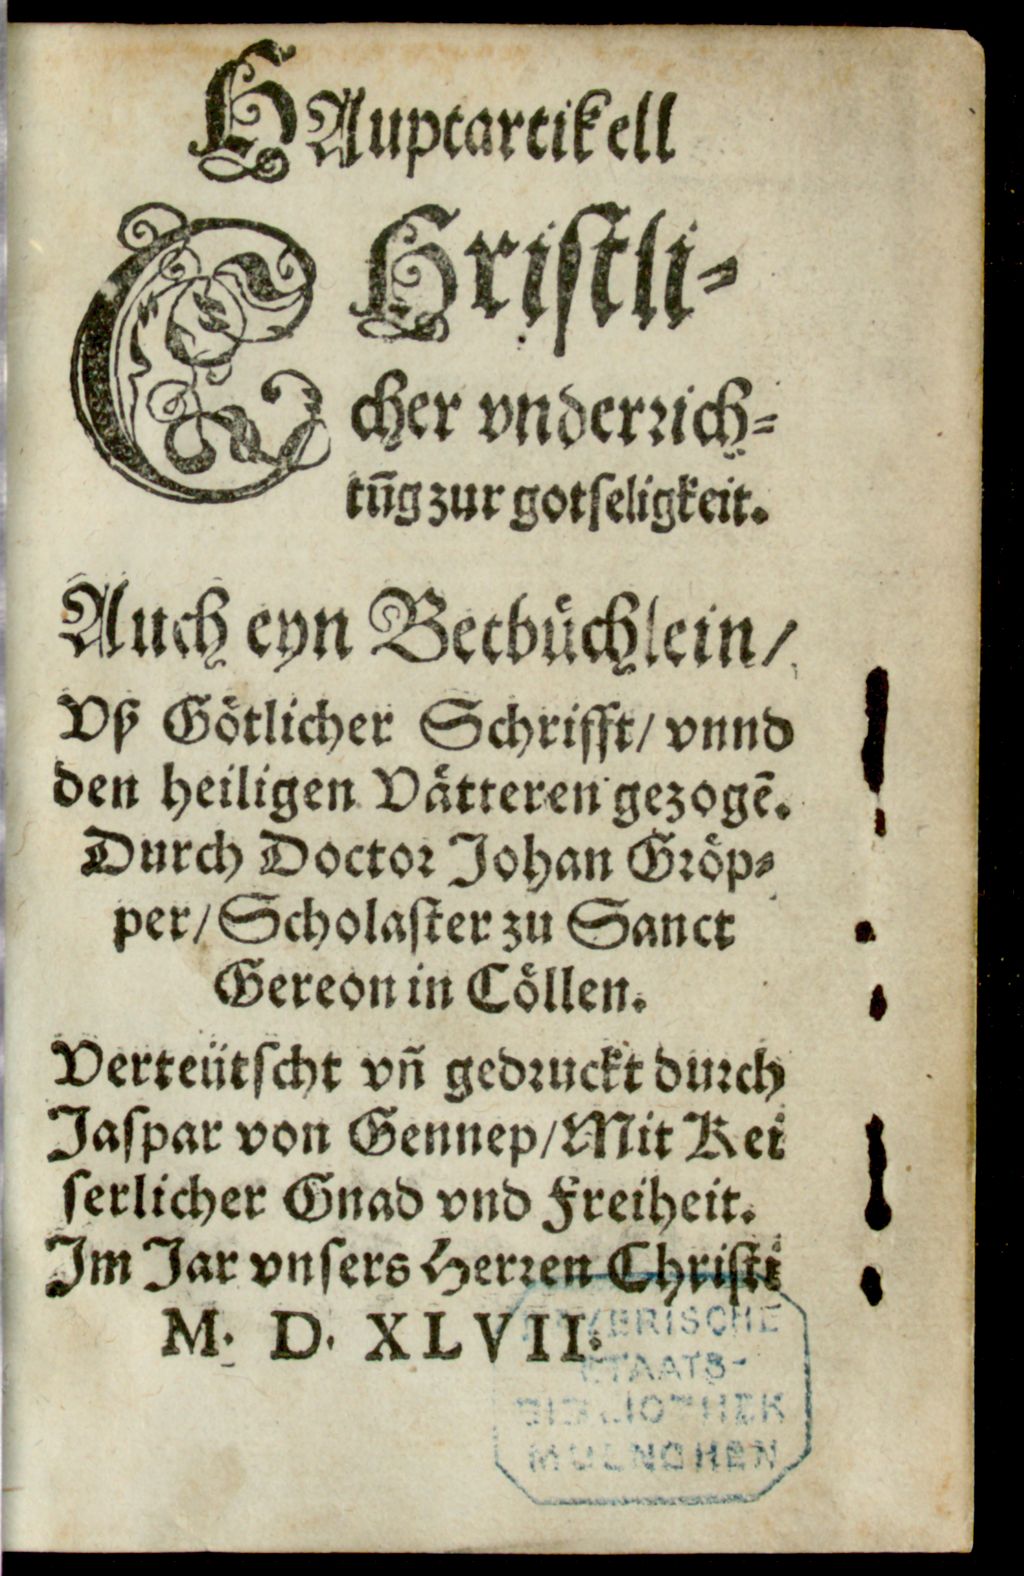 HAuptartikell
CHristli-
cher vnderrich-
tūg zur gotseligkeit.
Auch eyn Betbüchlein/
Vß Götlicher Schrifft/ vnnd
den heiligen Vätteren gezogē.
Durch Doctor Johan Gröp-
per/ Scholaster zu Sanct
Gereon in Cöllen.
Verteütscht vñ gedruckt durch
Jaspar von Gennep/ Mit Kei
serlicher Gnad vnd Freiheit.
Im Jar vnsers Herren Christi
M. D. XLVII.
BAYERISCHE
STAATS-
BIBLIOTHEK
MUENCHEN